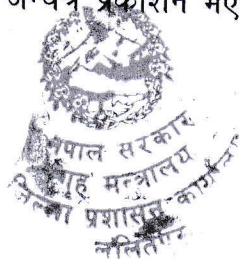 अन्यत्र प्रकाशन भए
नेपाल सरकार
गृह मन्त्रालय
जिल्ला प्रशासन कार्यालय
ललितपुर